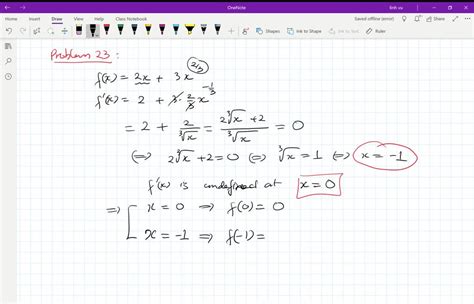 OneNote
linh vu
File Home Insert Draw View Help Class Notebook Saved offline (error) Share
Shapes Ink to Shape Ink to Math
Problem 23 :
f(x) = 2x + 3x^(2/3)
f'(x) = 2 + 3·2/3 x^(-1/3)
= 2 + 2/∛x = (2∛x + 2)/∛x = 0
⇔ 2∛x + 2 = 0 ⇔ ∛x = 1 ⇔ x = -1
f'(x) is undefined at x = 0
⇒ [ x = 0 ⇒ f(0) = 0
x = -1 ⇒ f(-1) =